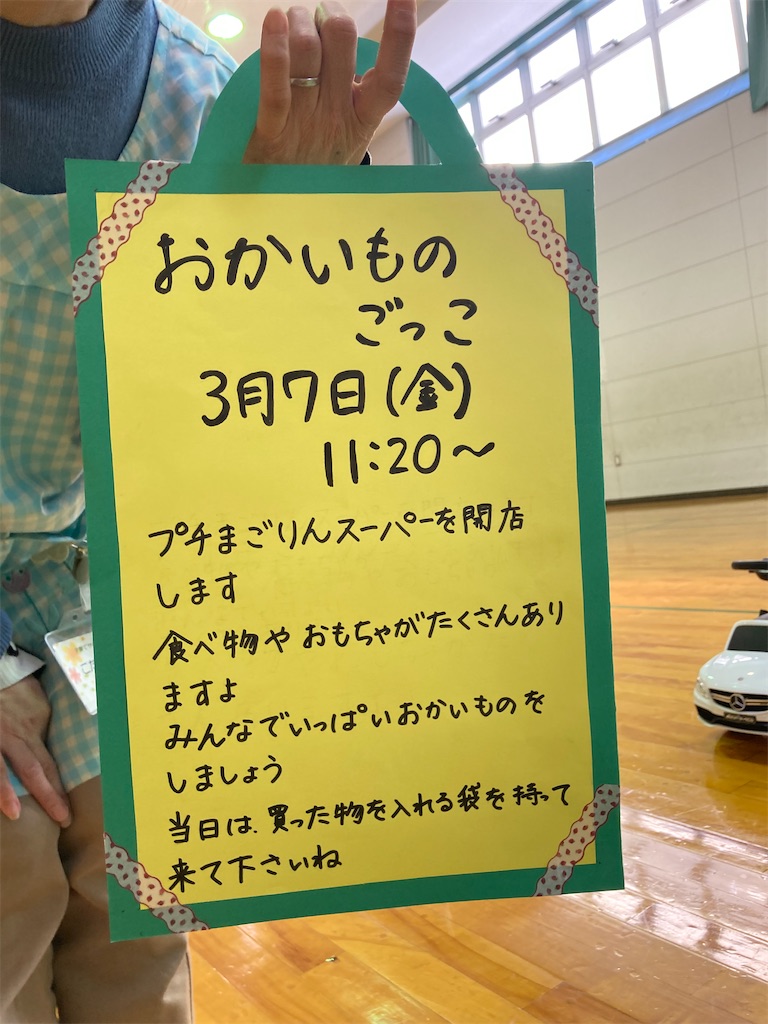 おかいもの
ごっこ
3月7日(金)
11:20～
プチまごりんスーパーを開店
します
食べ物や おもちゃがたくさんあり
ますよ
みんなでいっぱいおかいものを
しましょう
当日は、買った物を入れる袋を持って
来て下さいね